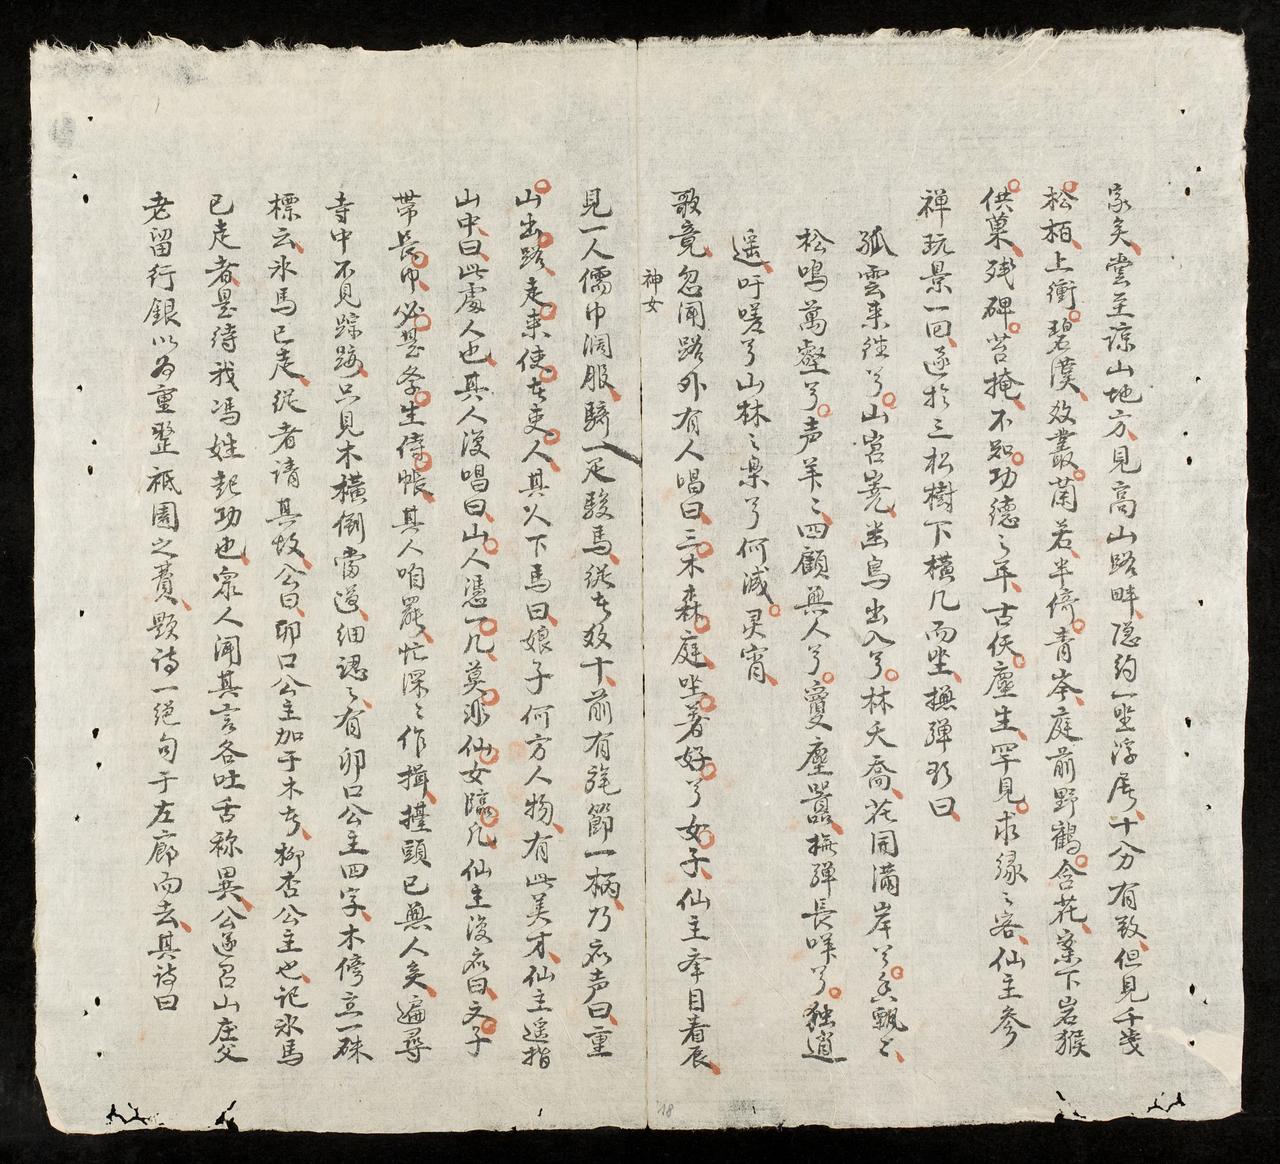 家矣嘗至諒山地方見高山路畔隱約一坐浮居十分有致但見千歲
松栢上衝碧漢数叢蘭若半倚青岑庭前野鶴含花案下岩猴
供菓残碑苔掩不知功德之年古佚塵生罕見求緣之客仙主参
禅玩景一回遂於三松樹下横几而坐撫弾歌曰
孤雲来往兮山岧嶤幽鳥出入兮林夭喬花開滿岸兮香飄々
松鳴萬壑兮声羊々四顧無人兮寰塵囂撫弾長嘆兮独逍
遥吁嗟兮山林之樂兮何減灵宵
歌竟忽闻路外有人唱曰三木森庭坐著好兮女子仙主举目看辰
神女
見一人儒巾闊服騎一疋駿馬從者数十前有旄節一柄乃应声曰重
山出路走来使者吏人其人下馬曰娘子何方人物有此美才仙主遥指
山中曰此處人也其人復唱曰山人憑一几莫非仙女臨凡仙主復应曰文子
帶長巾必是学生侍帳其人咱罷忙深々作揖擡頭已無人矣遍尋
寺中不見踪跡只見木横倒當道細認之有卯口公主四字木傍立一硃
標云氷馬已走從者請其故公曰卯口公主加于木者柳杏公主也記氷馬
已走者是待我馮姓起功也衆人闻其言各吐舌称異公遂召山庄父
老留行銀以為重整祇園之費題詩一絕句于左廊而去其詩曰
18